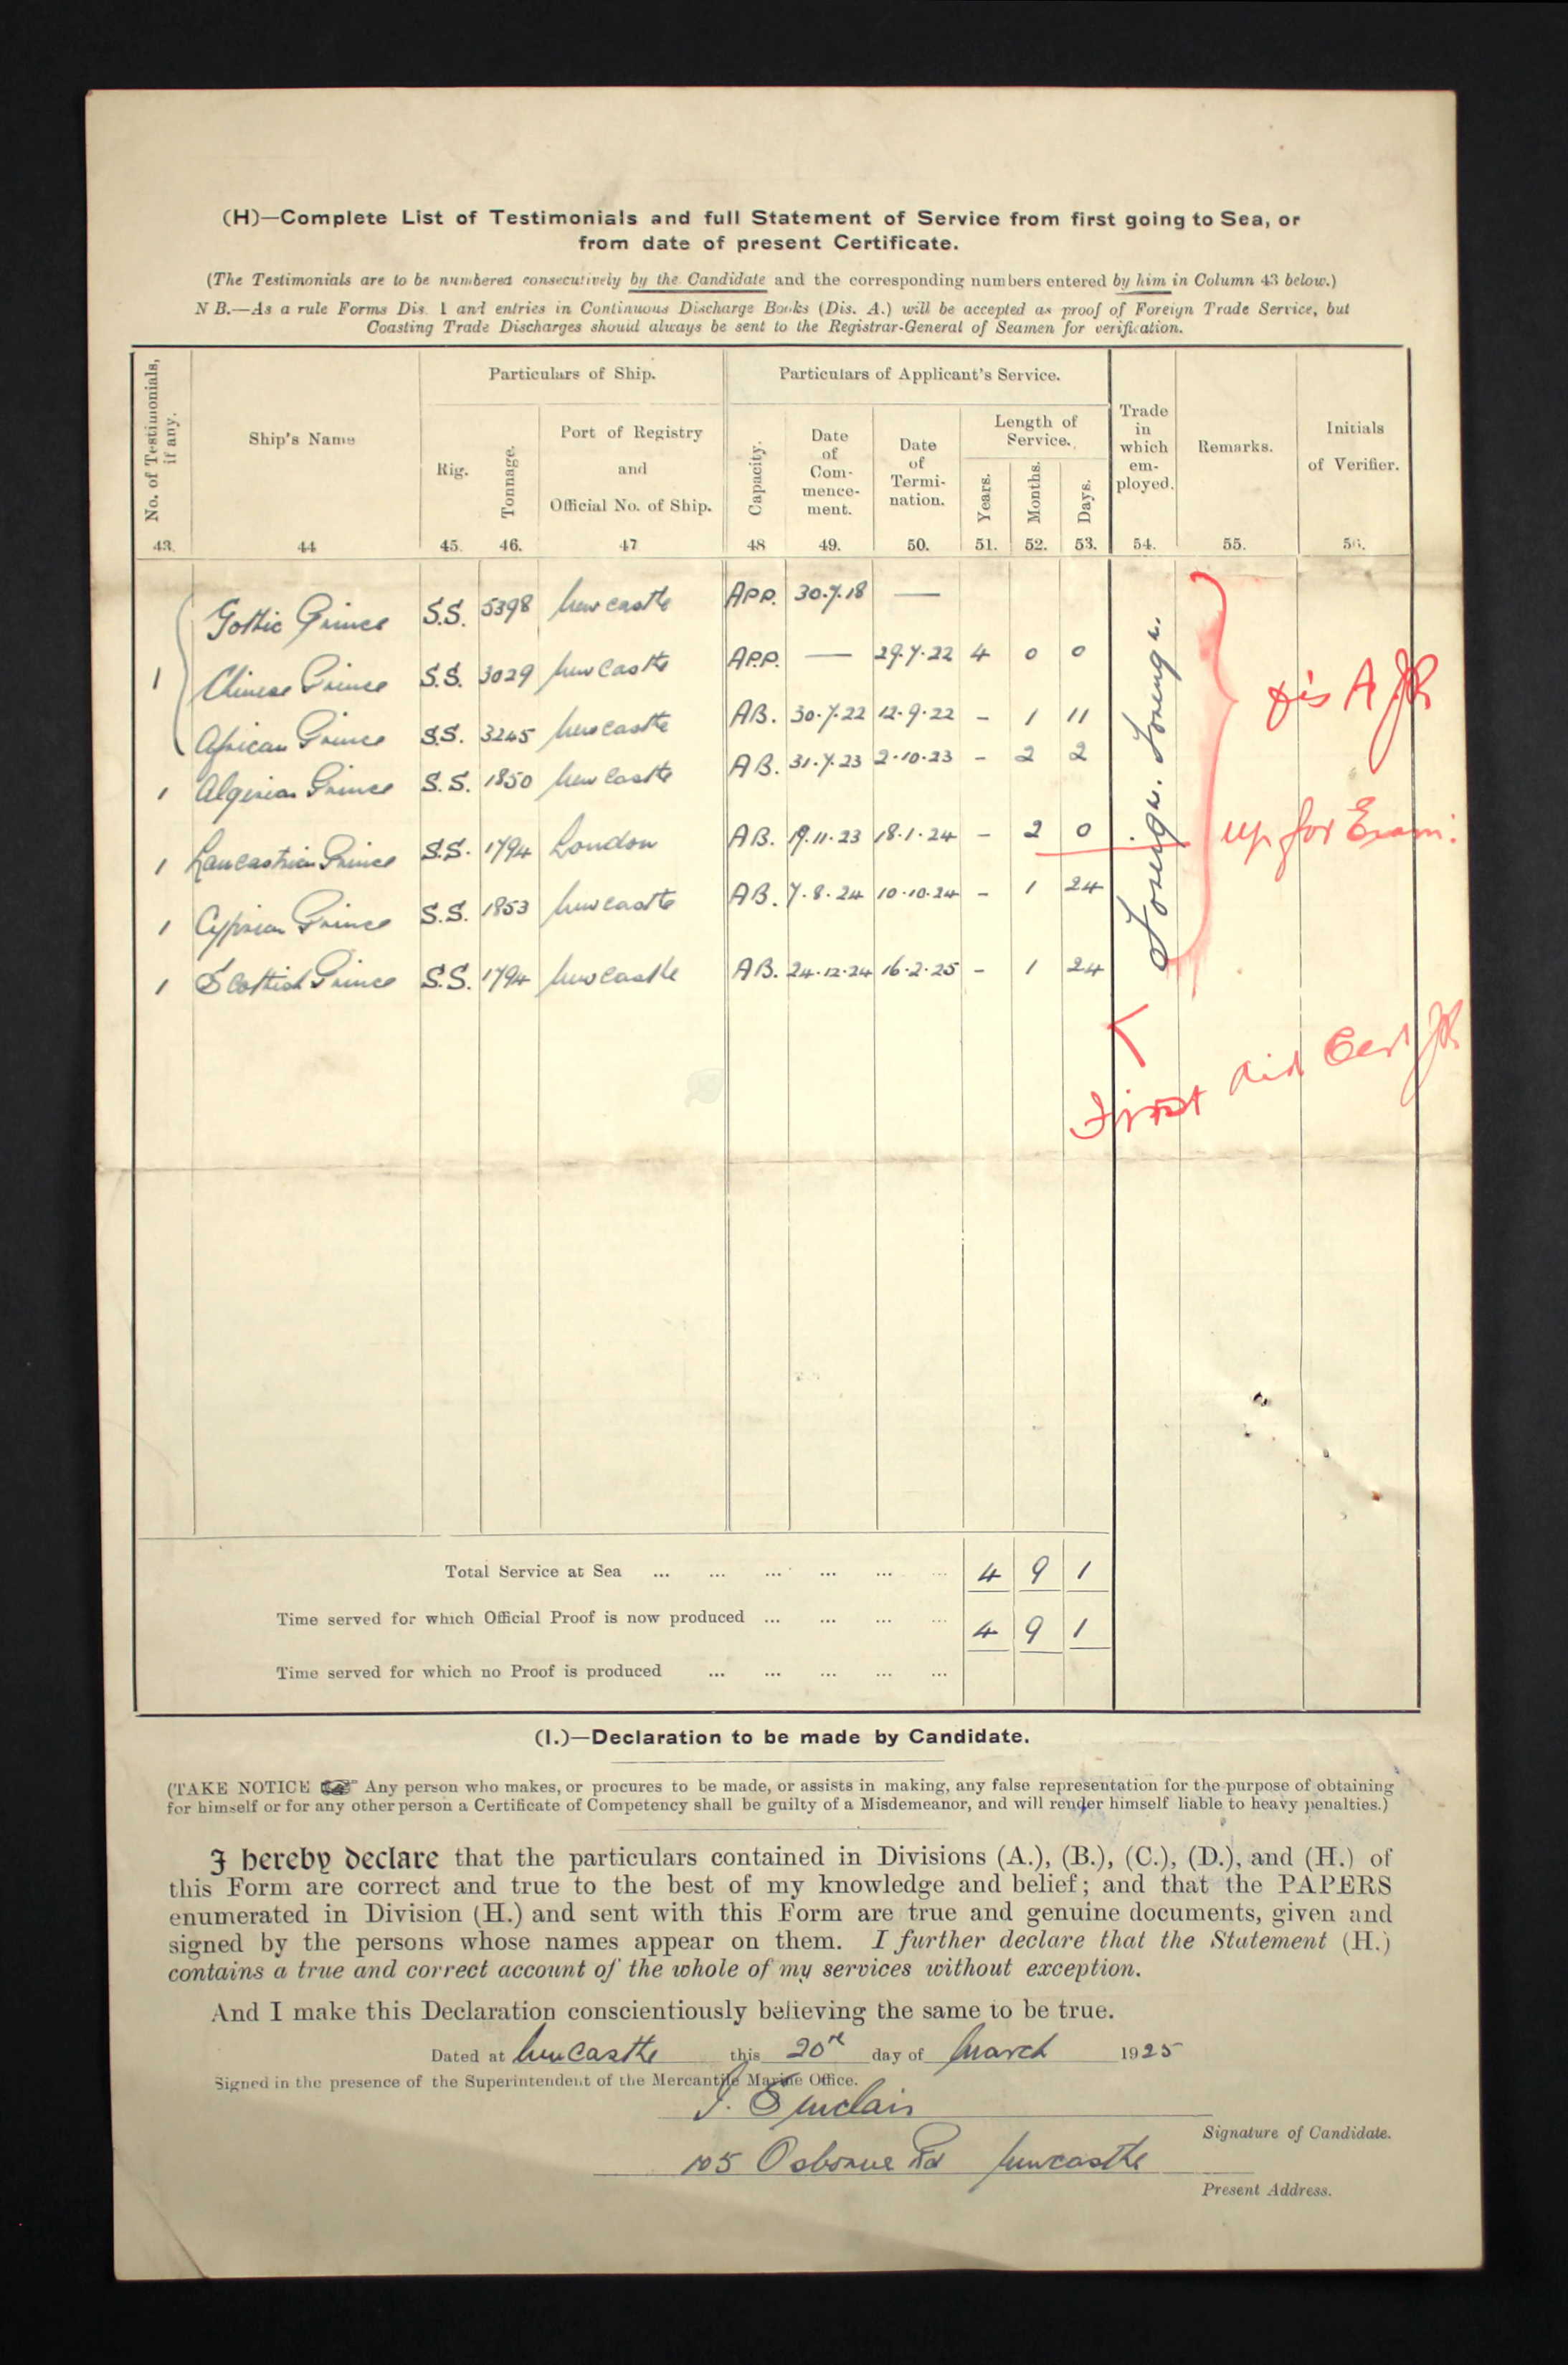 (H)—Complete List of Testimonials and full Statement of Service from first going to Sea, or
from date of present Certificate.
(The Testimonials are to be numbered consecutively by the Candidate and the corresponding numbers entered by him in Column 43 below.)
N B.—As a rule Forms Dis. 1 and entries in Continuous Discharge Books (Dis. A.) will be accepted as proof of Foreign Trade Service, but
Coasting Trade Discharges should always be sent to the Registrar-General of Seamen for verification.
No. of Testimonials, if any. Ship's Name Particulars of Ship. Particulars of Applicant's Service. Trade in which em-ployed. Remarks. Initials of Verifier.
Rig. Tonnage. Port of Registry and Official No. of Ship. Capacity. Date of Com-mence-ment. Date of Termi-nation. Length of Service. Years. Months. Days.
43. 44 45. 46. 47 48 49. 50. 51. 52. 53. 54. 55. 56.
Gothic Prince S.S. 5398 Newcastle App. 30.7.18 —
1 Chinese Prince S.S. 3029 Newcastle App. — 29.7.22 4 0 0
African Prince S.S. 3245 Newcastle AB. 30.7.22 12.9.22 - 1 11
1 Algerian Prince S.S. 1850 Newcastle AB. 31.7.23 2.10.23 - 2 2
1 Lancastrian Prince S.S. 1794 London AB. 19.11.23 18.1.24 - 2 0
1 Cyprian Prince S.S. 1853 Newcastle AB. 7.8.24 10.10.24 - 1 24
1 Scottish Prince S.S. 1794 Newcastle AB. 24.12.24 16.2.25 - 1 24
Foreign. Foreign.
Dis A JR
up for Exam.
First Aid Cert JR
Total Service at Sea ... ... ... ... ... ... 4 9 1
Time served for which Official Proof is now produced ... ... ... ... 4 9 1
Time served for which no Proof is produced ... ... ... ... ...
(I.)—Declaration to be made by Candidate.
(TAKE NOTICE ☞ Any person who makes, or procures to be made, or assists in making, any false representation for the purpose of obtaining
for himself or for any other person a Certificate of Competency shall be guilty of a Misdemeanor, and will render himself liable to heavy penalties.)
I hereby declare that the particulars contained in Divisions (A.), (B.), (C.), (D.), and (H.) of
this Form are correct and true to the best of my knowledge and belief; and that the PAPERS
enumerated in Division (H.) and sent with this Form are true and genuine documents, given and
signed by the persons whose names appear on them. I further declare that the Statement (H.)
contains a true and correct account of the whole of my services without exception.
And I make this Declaration conscientiously believing the same to be true.
Dated at Newcastle this 20th day of March 1925
Signed in the presence of the Superintendent of the Mercantile Marine Office.
J. Sinclair
Signature of Candidate.
105 Osborne Rd Newcastle
Present Address.